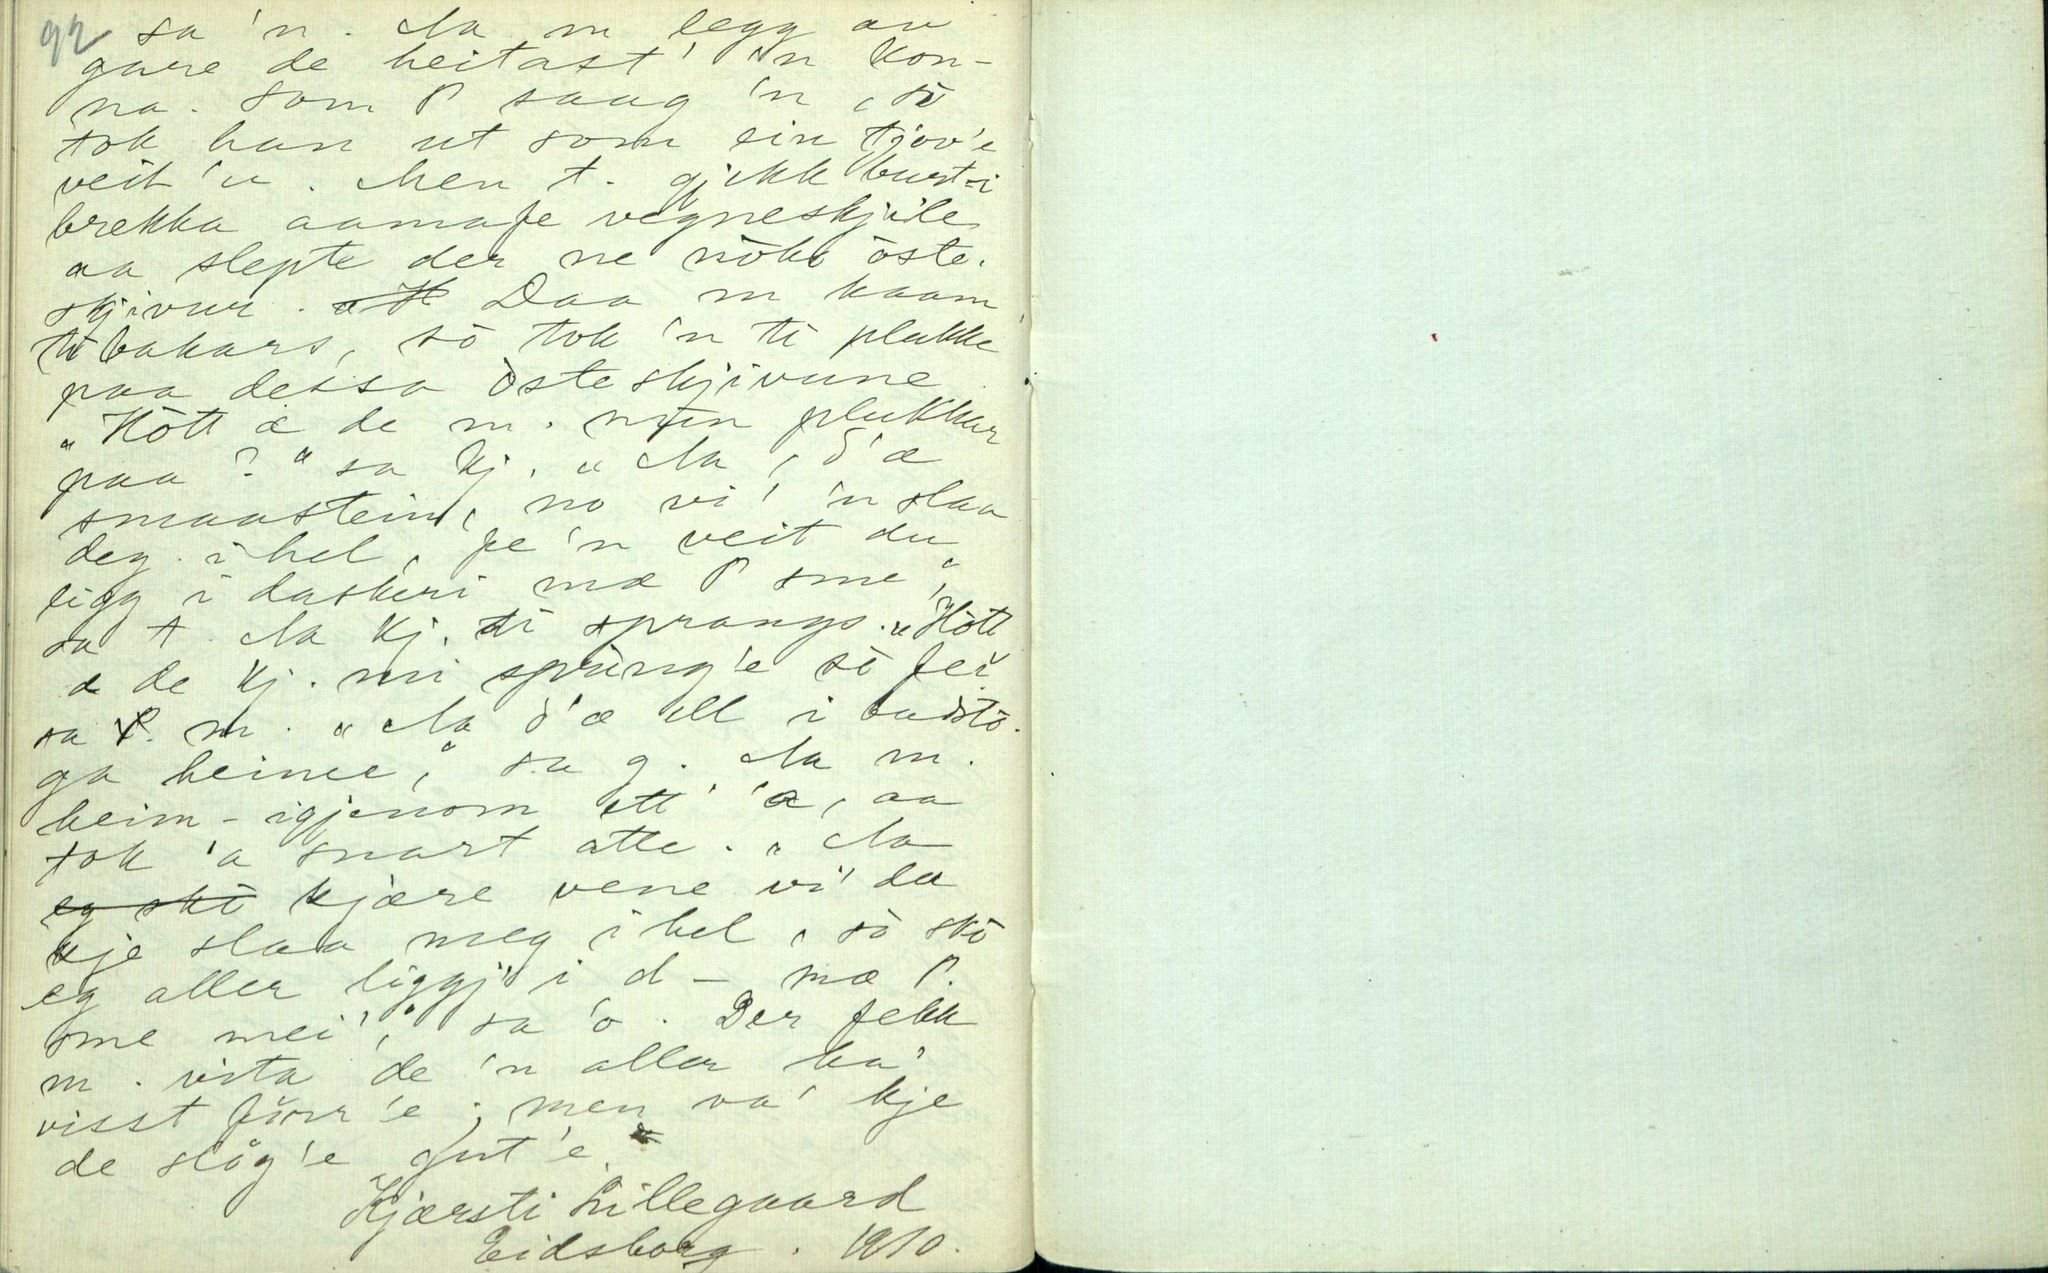 92 sa 'n. Aa m legg av
gare de heitast' 'n kon-
na. Som P saag 'n, so
tok han ut som ein tjov'e
veit 'u. Men t. gjekk burt-i
brekka aamafe vegneskjile
aa slepte der ne nòko òste-
skjivur. Daa m kaam
ti bakars, so tok 'n ti plukke
paa dessa òsteskjivune.
"Hòtt æ de m. min plukkar
paa?" sa kj. "Aa, d'æ
smaastein, no vi' 'n slaa
deg ihel, fe 'n veit du
ligg i daskeri mæ P sme",
sa t. Aa kj. ti sprangs. "Hòtt
æ de kj. mi spring'e so fei
sa P. m. "Aa d'æ ell i badstò-
ga heime," sa g. Aa m.
heim-igjenom ett 'æ, aa
tok 'a snart atte. "Aa
eg skò kjære vene vi' du
kje slaa meg ihel, so skò
eg aller liggj' i d- mæ P.
sme mei'," sa 'o. Der fekk
m. vita de 'n aller ha'
visst fòrr'e; men va' kje
de slòg'e gut'e.
Kjærsti Lillegaard
Eidsborg. 1910.